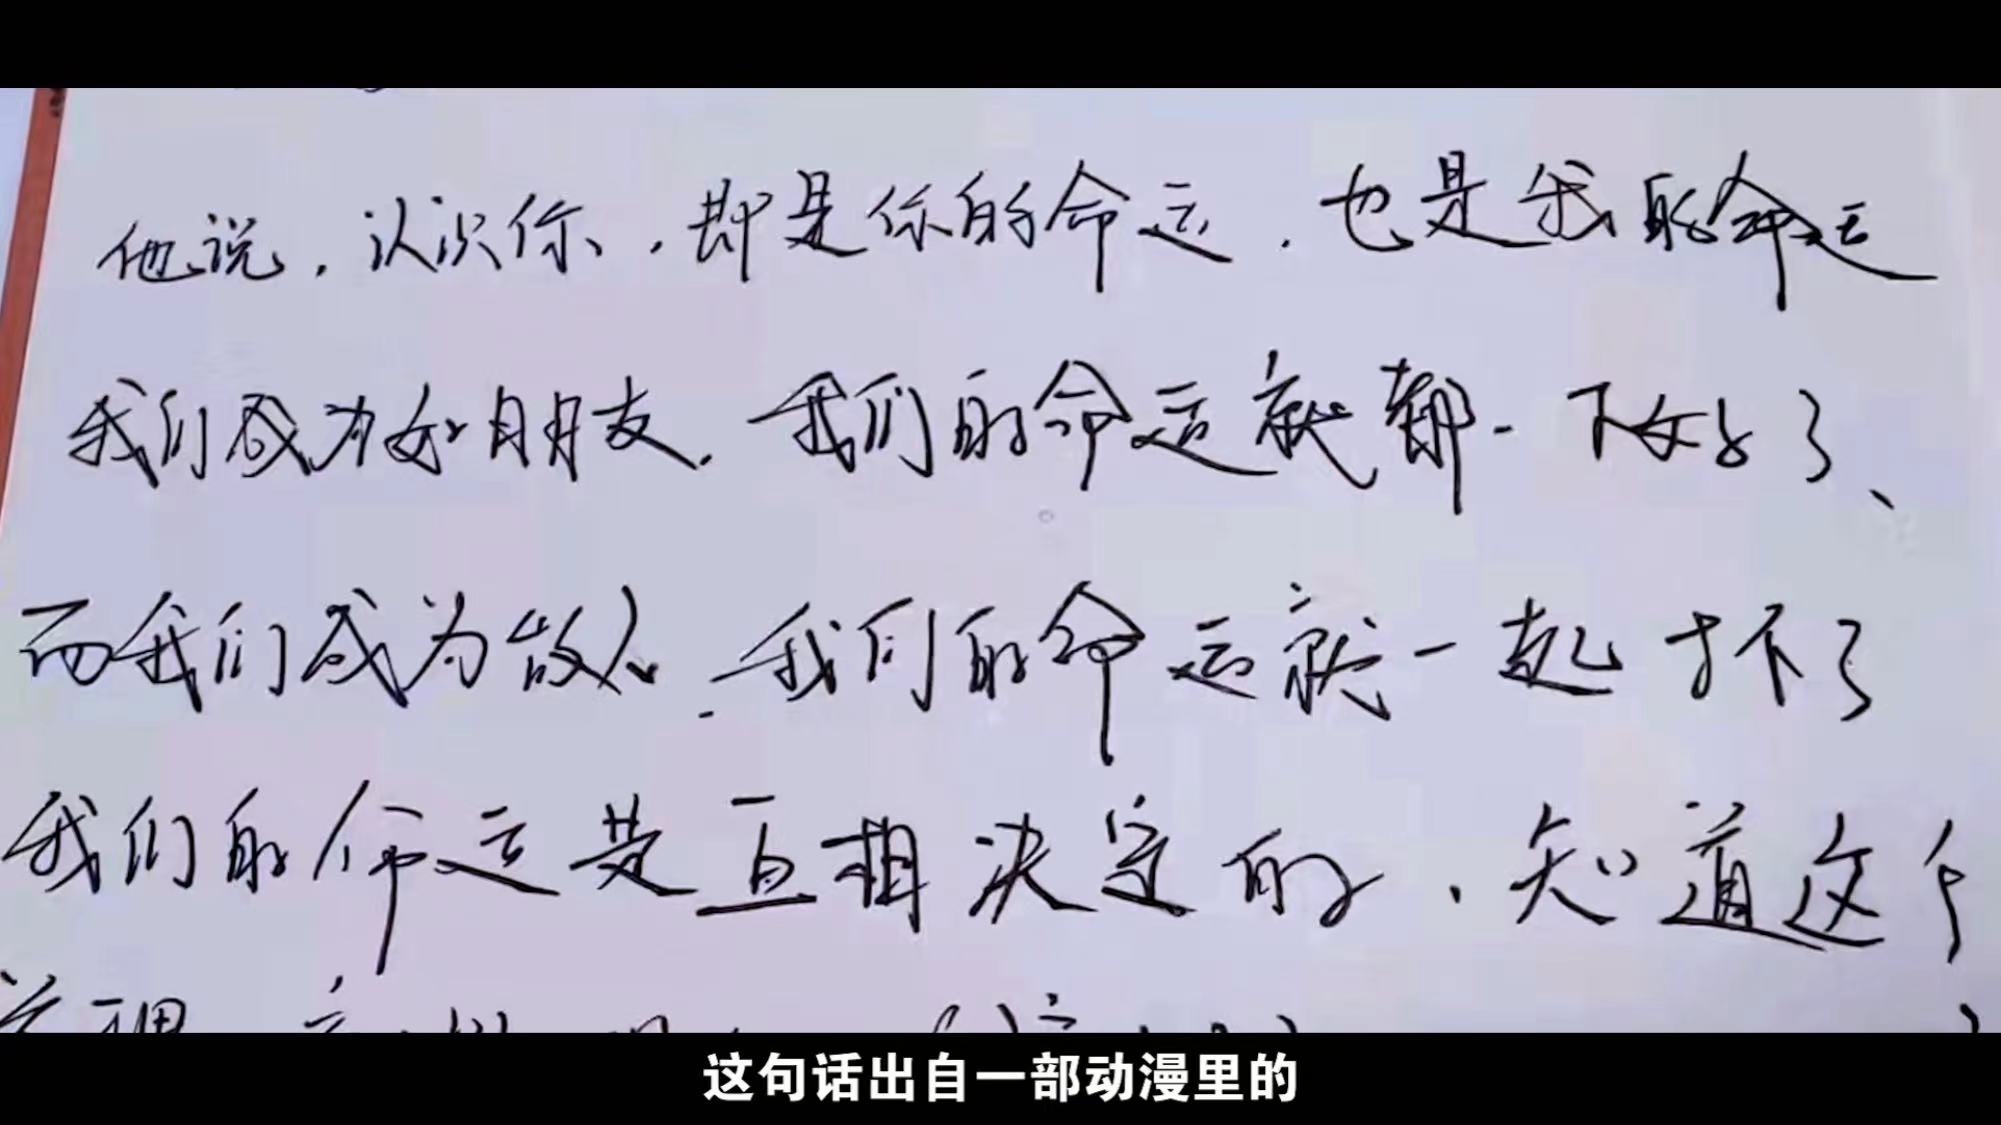 他说，认识你，即是你的命运，也是我的命运
我们成为好朋友，我们的命运就都一下好了、
而我们成为敌人，我们的命运就一起坏了
我们的命运是互相决定的，知道这个
道理
这句话出自一部动漫里的